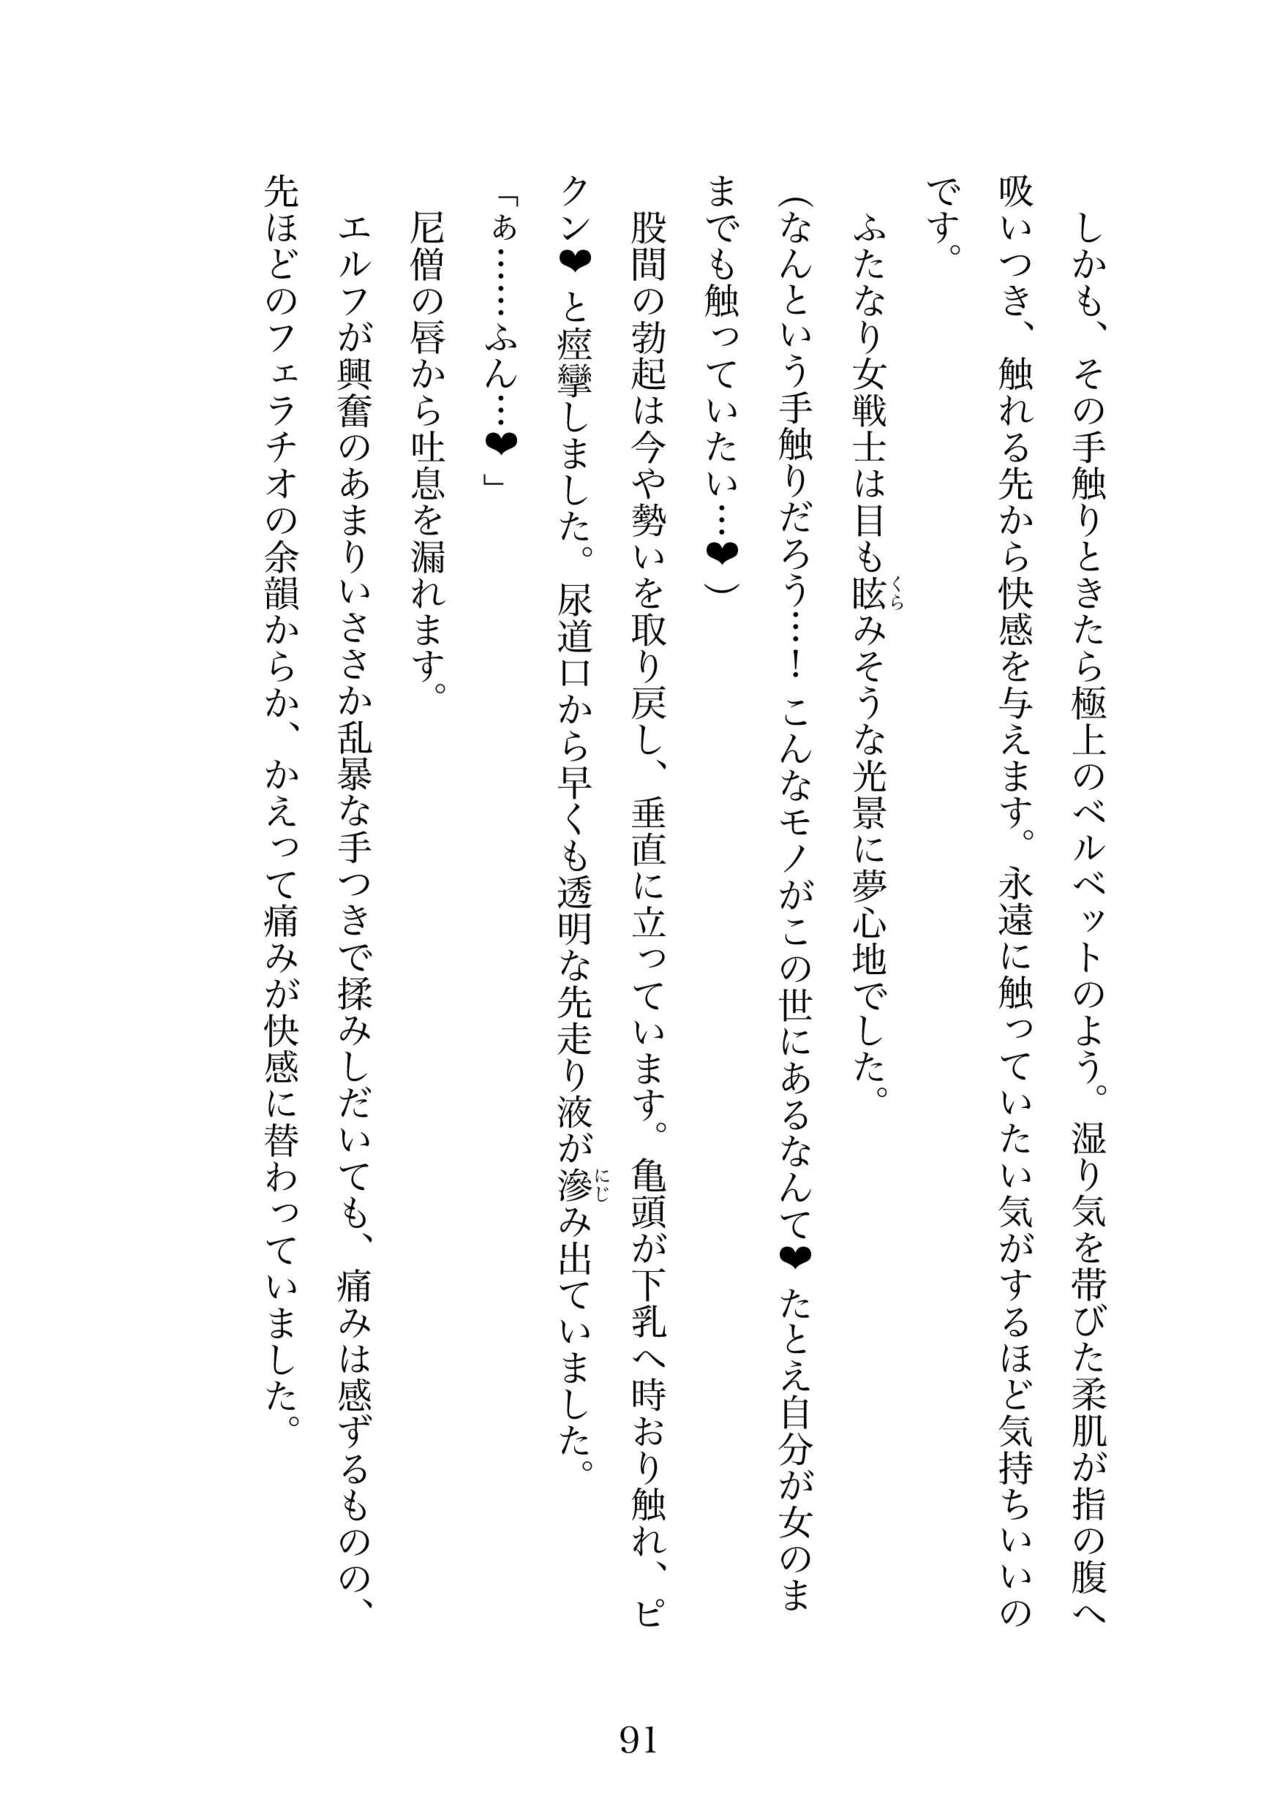 しかも、その手触りときたら極上のベルベットのよう。湿り気を帯びた柔肌が指の腹へ
吸いつき、触れる先から快感を与えます。永遠に触っていたい気がするほど気持ちいいの
です。
ふたなり女戦士は目も眩みそうな光景に夢心地でした。
くら
（なんという手触りだろう…！こんなモノがこの世にあるなんて❤たとえ自分が女のま
までも触っていたい…❤）
股間の勃起は今や勢いを取り戻し、垂直に立っています。亀頭が下乳へ時おり触れ、ピ
クン❤と痙攣しました。尿道口から早くも透明な先走り液が滲み出ていました。
にじ
「あ……ふん…❤」
尼僧の唇から吐息を漏れます。
エルフが興奮のあまりいささか乱暴な手つきで揉みしだいても、痛みは感ずるものの、
先ほどのフェラチオの余韻からか、かえって痛みが快感に替わっていました。
91